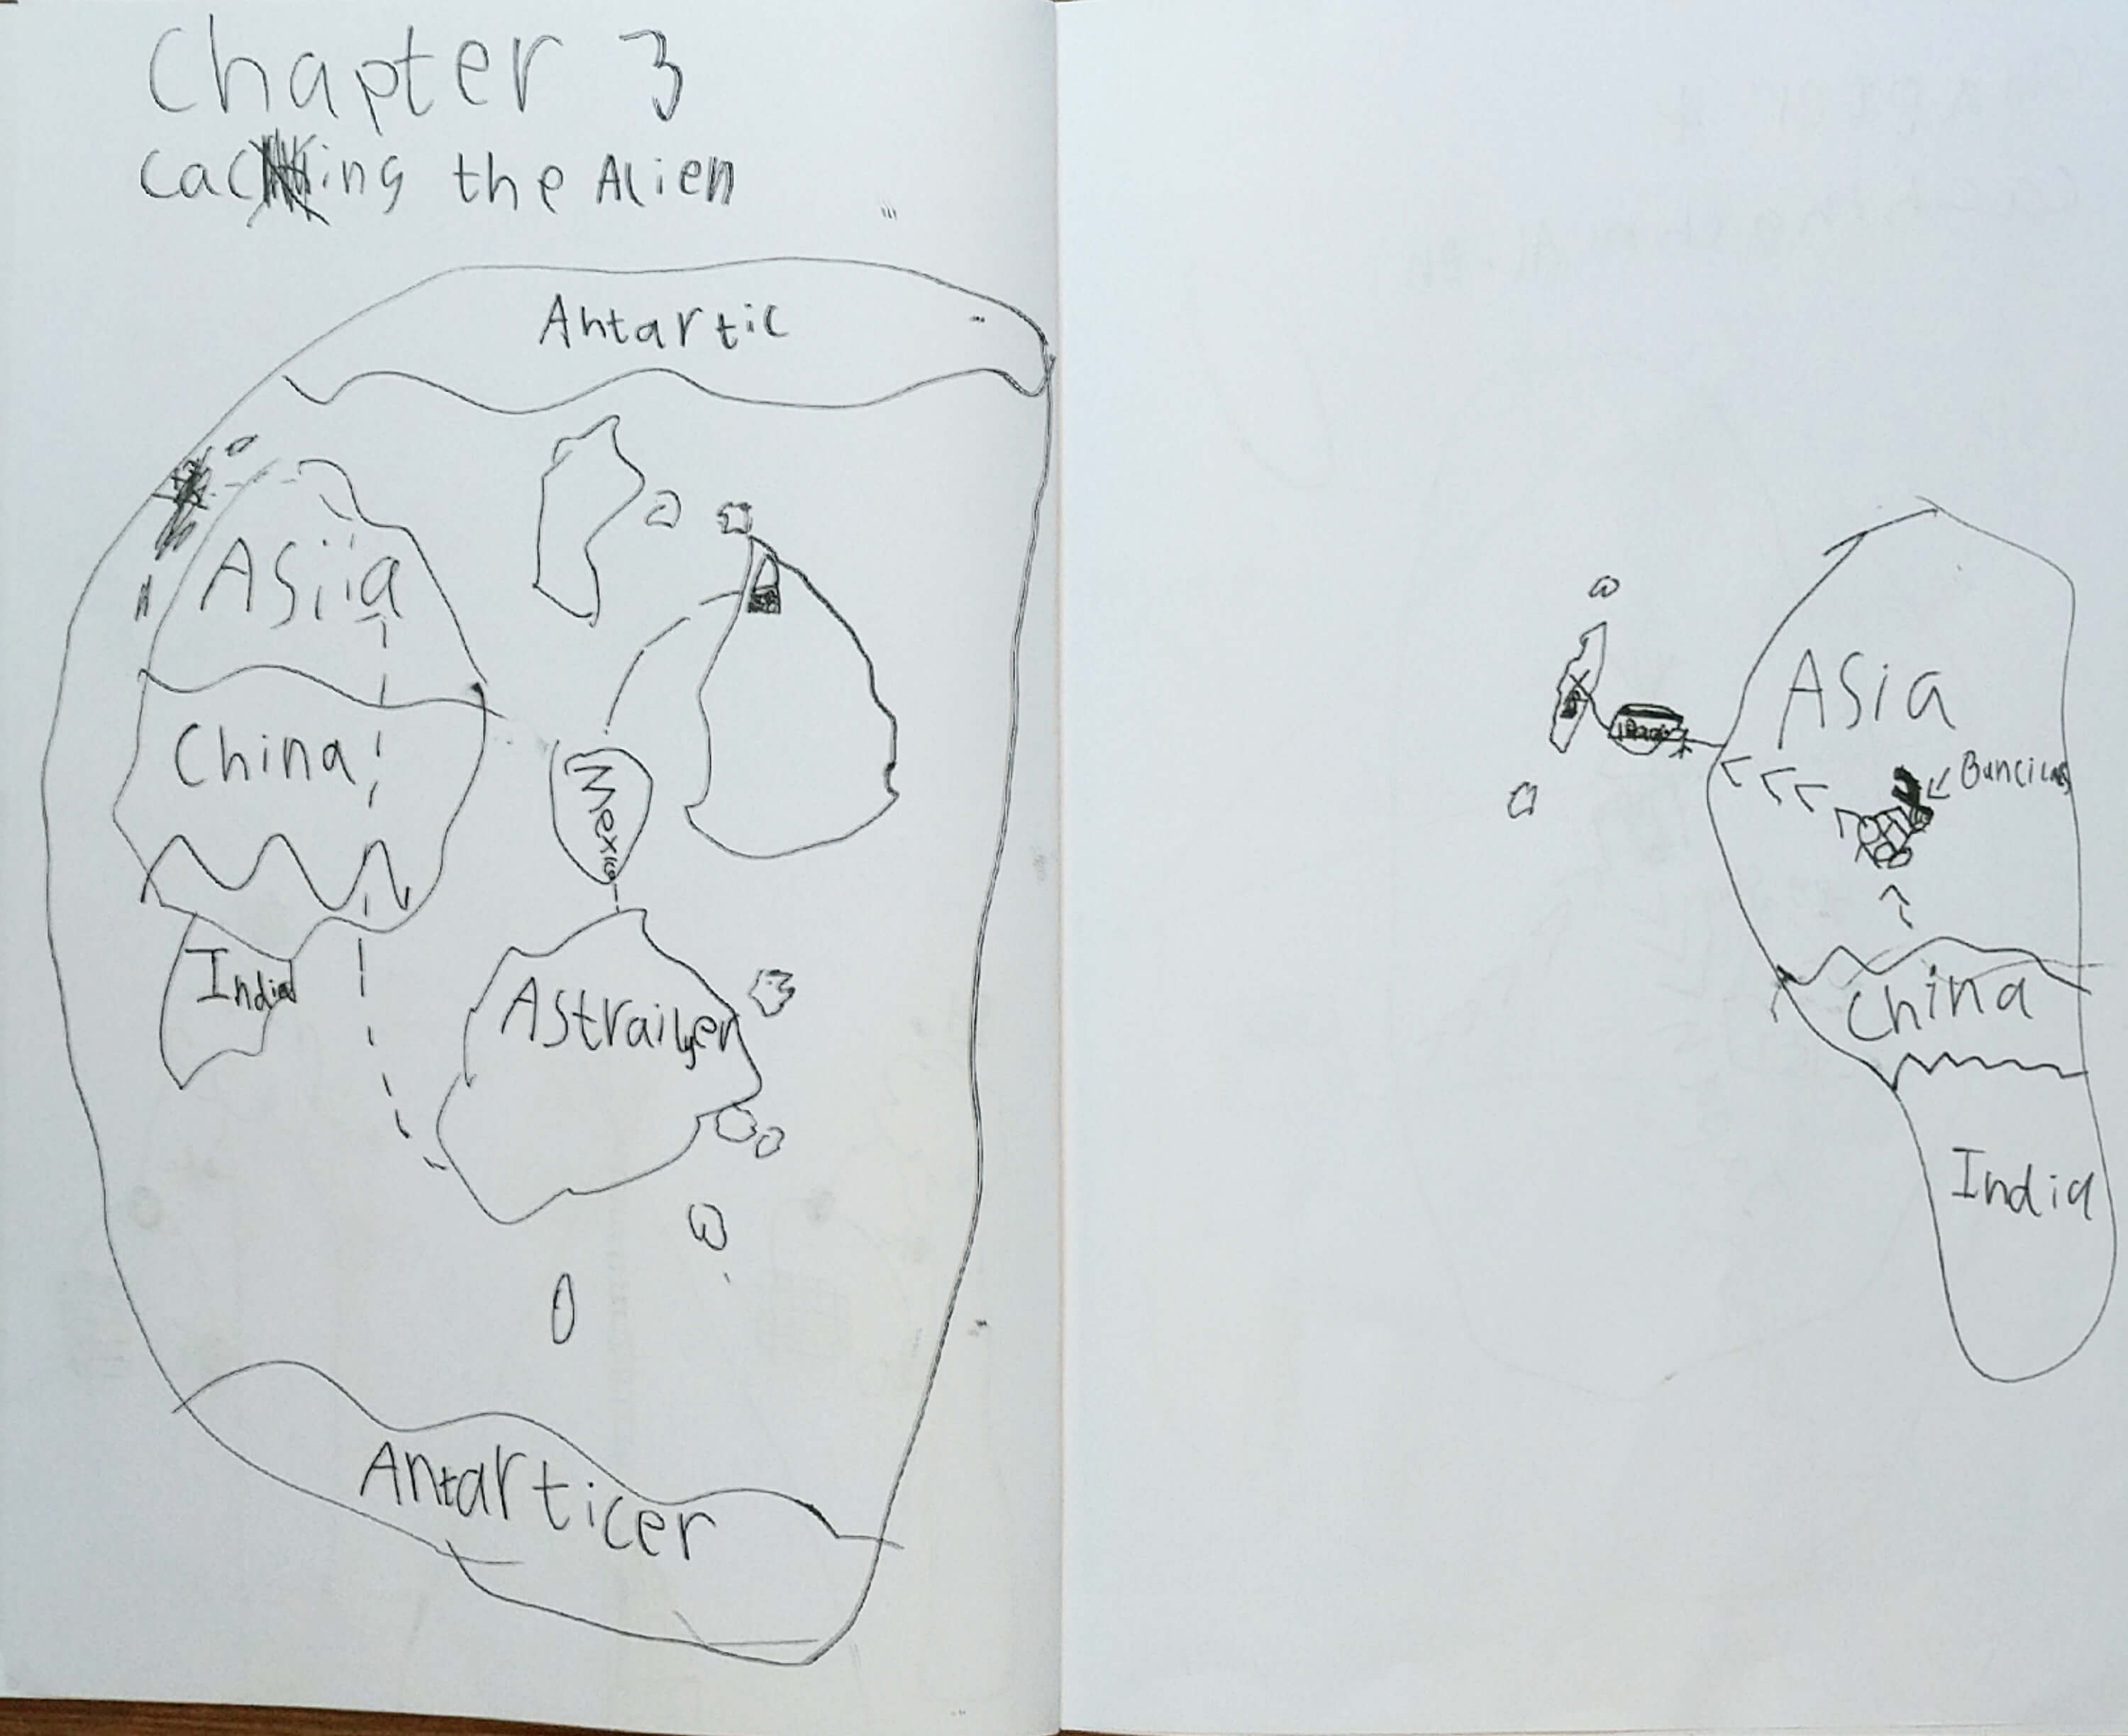 Chapter 3
Caching the Alien
Antartic
Asiia
China
India
Mexico
Astrailyer
Antarticer
Asia
China
India